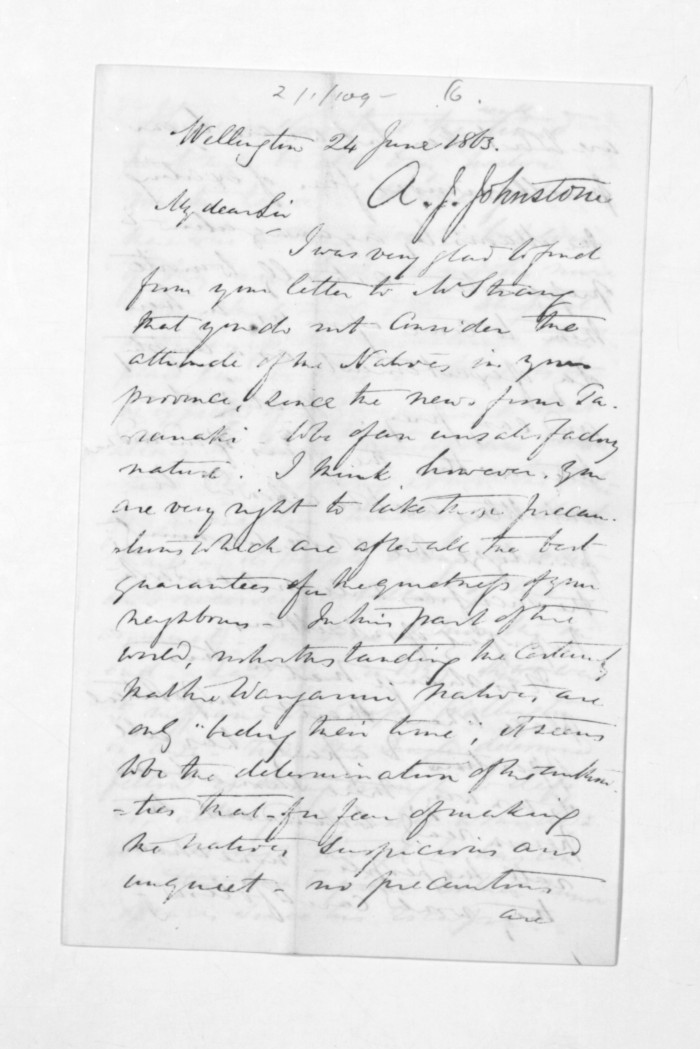 2/1/109- 6.
Wellington 24 June 1863.
A. J. Johnstone
My dear Sir
I was very glad to find
from your letter to Mr Strang
that you do not consider the
attitude of the Natives in your
province, since the news from Ta-
ranaki - to be of an unsatisfactory
nature. I think, however, you
are very right to take those precau-
tions which are after all the best
guarantees for the quietness of your
neighbours - In this part of the
world, notwithstanding the certainty
that the Wanganui Natives are
only "biding their time", it seems
to be the determination of the authori-
-ties that - for fear of making
the natives suspicious and
unquiet - no precautions
are